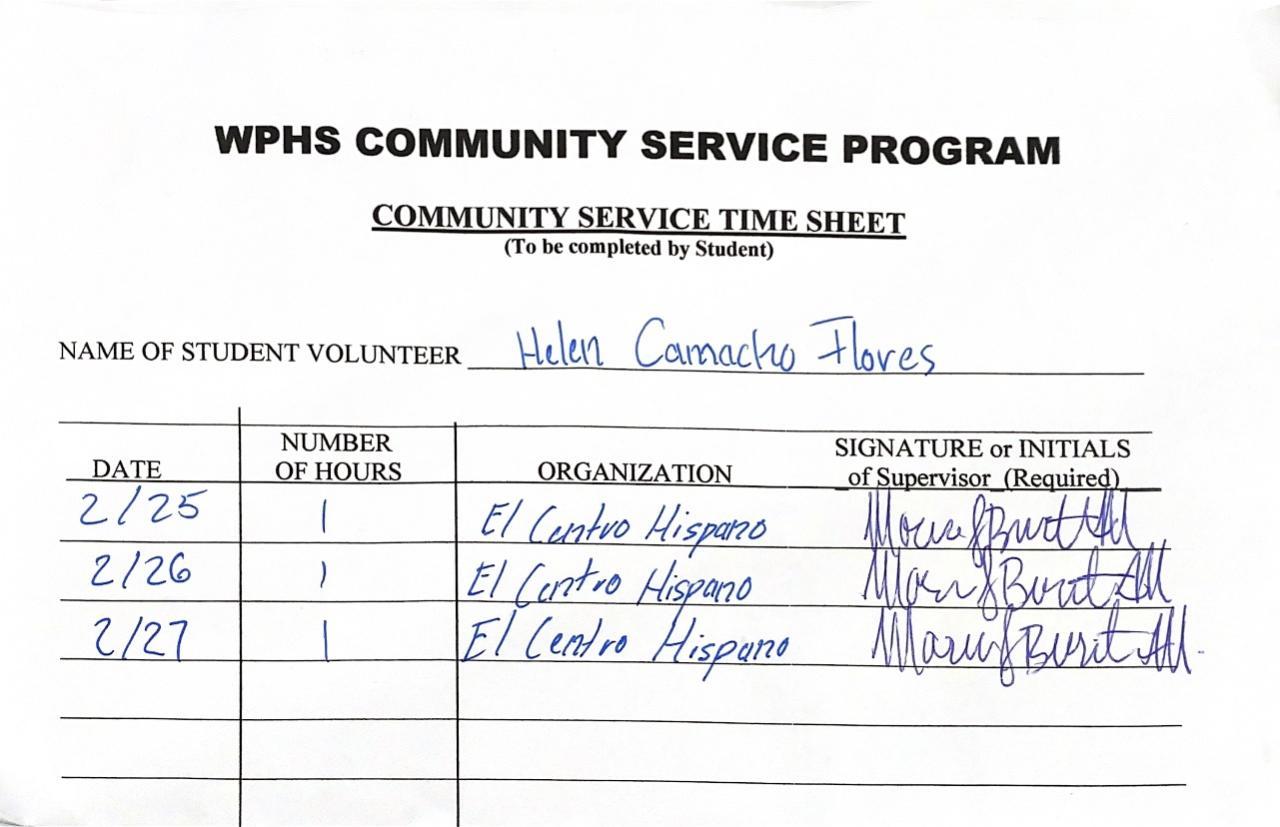 WPHS COMMUNITY SERVICE PROGRAM
COMMUNITY SERVICE TIME SHEET
(To be completed by Student)
NAME OF STUDENT VOLUNTEER Helen Camacho Flores
DATE NUMBER OF HOURS ORGANIZATION SIGNATURE or INITIALS of Supervisor (Required)
2/25 1 El Centro Hispano
2/26 1 El Centro Hispano
2/27 1 El Centro Hispano